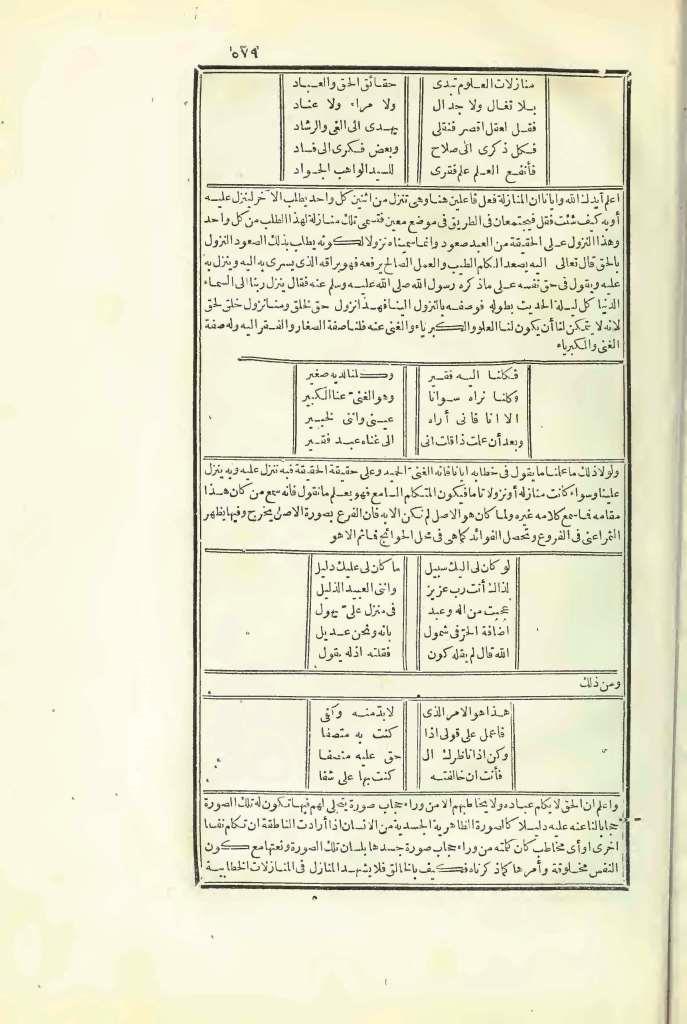 ٥٧٩
منازلات العلوم تبدى حقائق الحق والعباد
بلا تغال ولا جدال ولا مراء ولا عناد
فقل لعقل اقصر فنقلى يهدى الى الغى والرشاد
فكل ذكرى الى صلاح وبعض فكرى الى فساد
فأنفع العلم علم فقرى للسيد الواهب الجواد
اعلم أيدك الله وايانا ان المنازلة فعل فاعلين هنا وهى تنزل من اثنين كل واحد يطلب الآخر لينزل عليه
أو به كيف شئت فقل فيجتمعان فى الطريق فى موضع معين فتسمى تلك منازلة لهذا الطلب من كل واحد
وهذا النزول على الحقيقة من العبد صعود وانما سميناه نزولا لكونه يطلب بذلك الصعود النزول
بالحق قال تعالى اليه يصعد الكلم الطيب والعمل الصالح يرفعه فهو براقه الذى يسرى به اليه وينزل به
عليه ويقول فى حق نفسه على ماذكره رسول الله صلى الله عليه وسلم عنه فقال ينزل ربنا الى السماء
الدنيا كل ليلة الحديث بطوله فوصفه بالنزول الينا فهذا نزول حق لخلق ومنا نزول خلق لحق
لانه لا يتمكن لنا أن يكون لنا العلو والكبرياء والغنى عنه فلنا صفة الصغار والفقر اليه وله صفة
الغنى والكبرياء
فكلنا اليه فقير وكلنا لديه صغير
وكلنا نراه سوانا وهو الغنىّ عنا الكبير
الا انا فانى أراه عينى واننى لخبير
وبعد أن علمت ذا قلت انى الى غناه عبد فقير
ولولا ذلك ما علمنا ما يقول فى خطابه ايانا فانه الغنىّ الحميد وعلى حقيقة الحقيقة فبه ننزل عليه وبه ينزل
علينا وسواء كانت منازلة أو نزولا تاما فيكون المتكلم السامع فهو يعلم ما نقول فانه سمع من كان هذا
مقامه فما سمع كلامه غيره ولما كان هو الاصل لم نكن الا به فان الفرع بصورة الاصل يخرج وفيها يظهر
الثمر اعنى فى الفروع وتحصل الفوائد كما هى فى محل الحوائج فما ثم الا هو
لو كان لى اليك سبيل ما كان لى عليك دليل
لذاك أنت رب عزيز واننى العبيد الذليل
عجبت من اله وعبد فى منزل علىّ يهول
اضافة الحرّ فى شمول بانه ونحن عديل
الله قال لم يقله كون فقلته اذ له يقول
ومن ذلك
هذا هو الامر الذى لابدّ منه وكفى
فاعمل على قولى اذا كنت به متصفا
وكن اذا ناظرك ال حق عليه منصفا
فأنت ان خالفته كنت بها على شفا
واعلم ان الحق لا يكلم عباده ولا يخاطبهم الا من وراء حجاب صورة يتجلى لهم فيها تكون له تلك الصورة
حجابا لنا عنه عليه دليلا كالصورة الظاهرية الجسدية من الانسان اذا أرادت الناطقة ان تكلم نفسا
اخرى او أى مخاطب كان كلمته من وراء حجاب صورة جسدها بلسان تلك الصورة ونعتها مع كون
النفس مخلوقة وأمرها كما ذكرناه فكيف بالخالق فلا يشهد المنازل فى المنازلات الخطابية